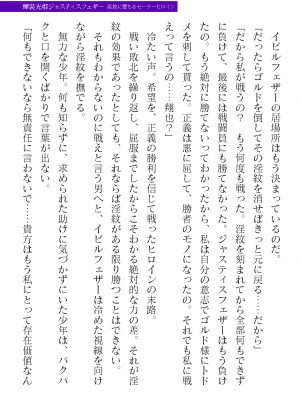 輝装光姫ジャスティスフェザー 淫欲に堕ちるセーラーヒロイン
イビルフェザーの居場所はもう決まっているのだ。
「だったらゴルドを倒してその淫紋を消せばきっと元に戻る……だから」
「だから私が戦うの？ もう何度も戦った。淫紋を刻まれてから全部何もできず
に負けて、最後には戦闘員にも勝てなかった。ジャスティスフェザーはもう負け
たの。もう絶対に勝てないってわかったから、私は自分の意志でゴルド様にトド
メを刺して貰ったの。正義は悪に屈して、勝者のモノになったの。それでも私に戦
えって言うの……翔也？」
冷たい声。希望を、正義の勝利を信じて戦ったヒロインの末路。
戦い敗北を繰り返し、屈服までしたからこそわかる絶対的な力の差。それが淫
紋の効果であったとしても、それならば淫紋がある限り勝つことはできない。
それもわからないのに戦えと言う男へと、イビルフェザーは冷めた視線を向け
ながら淫紋を撫でる。
無力な少年。何も知らずに、求められた助けに気づかずにいた少年は、パクパ
クと口を開くばかりで言葉が出ない。
「何もできないなら無責任に言わないで……貴方はもう私にとって存在価値なん